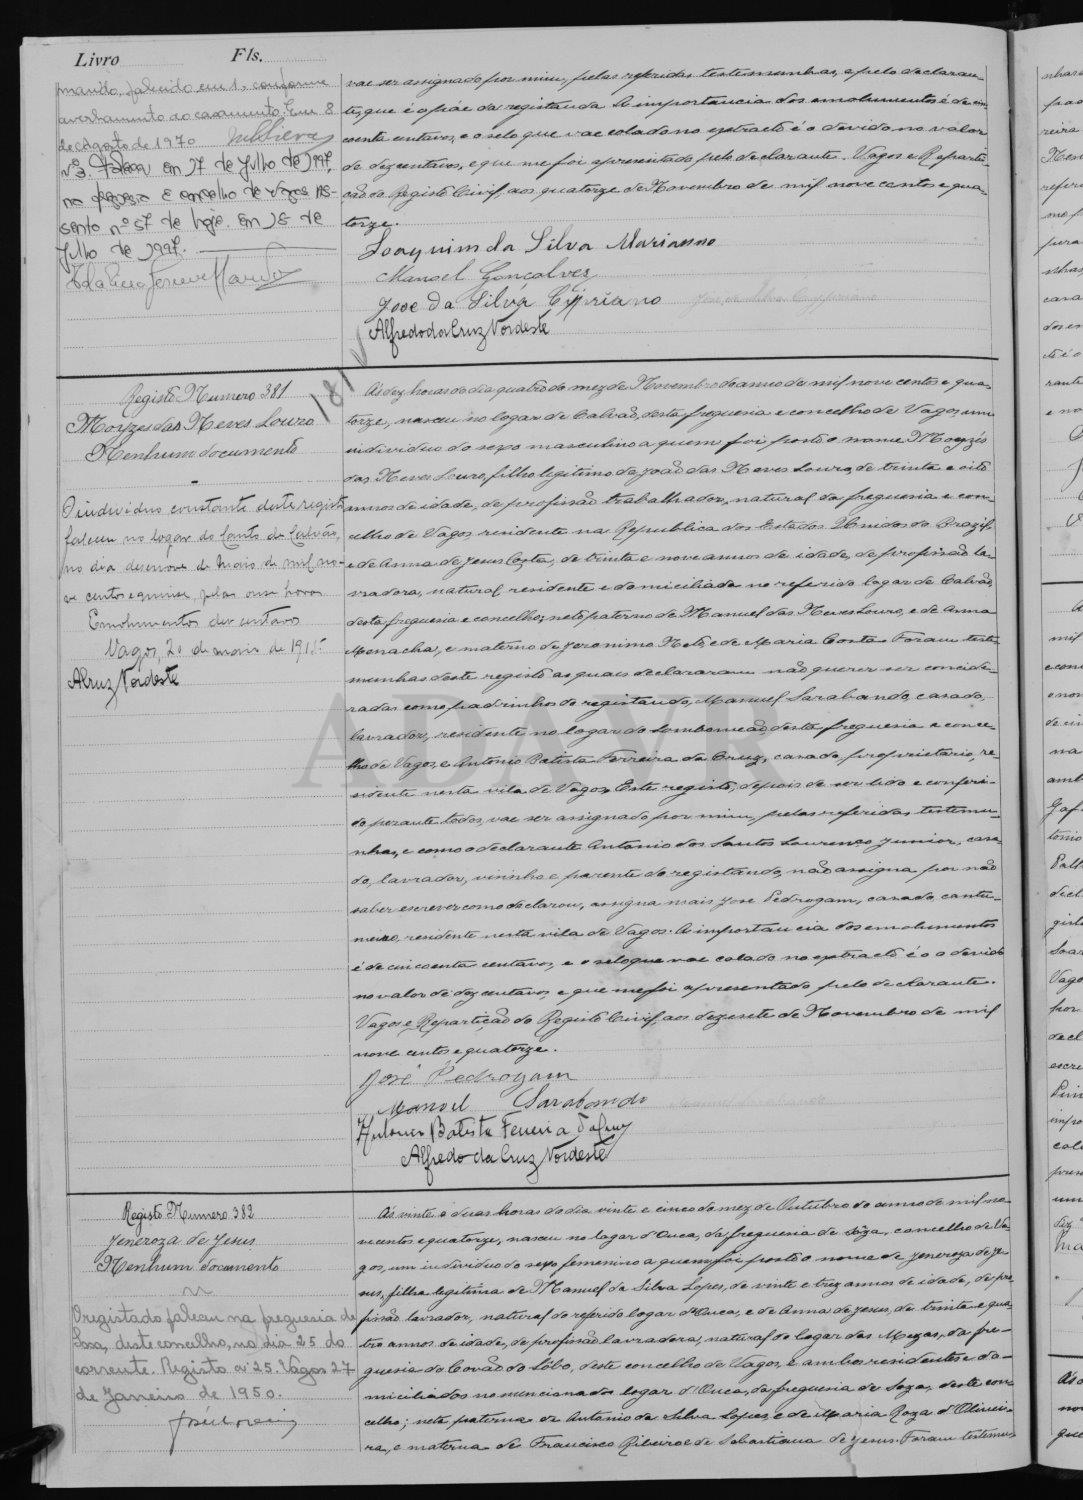 Livro Fls.
marido, falecido em 1, conforme
averbamento ao casamento. Em 8
de Agosto de 1970
nº 3. Faleceu em 17 de Julho de 1997,
na freguesia e concelho de Vagos As-
sento nº 57 de hoje. Em 18 de
Julho de 1997.
vae ser assignado por mim, pelas referidas testemunhas, e pelo declaran-
te, que é o pae da registanda. A importancia dos emolumentos é de cin-
coenta centavos, e o selo que vae colado no extracto é o devido no valor
de dez centavos, e que me foi apresentado pelo declarante. Vagos e Reparti-
ção do Registo Civil, aos quatorze de Novembro de mil nove centos e qua-
torze.
Joaquim da Silva Marianno
Manoel Gonçalves
Jose da Silva Cypriano
Alfredo da Cruz Nordeste
Registo Numero 381
Moyzes das Neves Louro
Nenhum documento
181
O individuo constante deste registo
faleceu no logar do Canto de Calvão,
no dia desenove de maio de mil no-
ve centos e quinse, pelas onse horas
Emolumentos dez centavos
Vagos, 20 de maio de 1915
ACruz Nordeste
Ás dez horas do dia quatro do mez de Novembro do anno de mil nove centos e qua-
torze, nasceu no logar de Calvão, desta freguesia e concelho de Vagos, um
individuo do sexo masculino a quem foi posto o nome Moyzés
das Neves Louro, filho legitimo de João das Neves Louro, de trinta e oito
annos de idade, de profissão trabalhador, natural da freguesia e con-
celho de Vagos residente na Republica dos Estados Unidos do Brazil,
e de Anna de Jesus Costa, de trinta e nove annos de idade, de profissão la-
vradora, natural residente e domiciliada no referido logar de Calvão,
desta freguesia e concelho; neto paterno de Manuel das Neves Louro, e de Anna
Monacha, e materno de Jeronimo Neto, e de Maria Costa. Foram teste-
munhas deste registo as quaes declararam não querer ser conside-
radas como padrinhos do registando, Manuel Sarabando, casado,
lavrador, residente no logar do Lombomeão, desta freguesia e conce-
lho de Vagos, e Antonio Batista Ferreira da Cruz, casado, proprietario, re-
sidente nesta vila de Vagos. Este registo, depois de ser lido e conferi-
do perante todos, vae ser assignado por mim, pelas referidas testemu-
nhas, e como o declarante Antonio dos Santos Lourenço Junior, casa-
do, lavrador, visinho e parente do registando, não assigna por não
saber escrever como declarou, assigna mais Jose Pedrogam, casado, cantu-
neiro, residente nesta vila de Vagos. A importancia dos emolumentos
é de cincoenta centavos, e o selo que vae colado no extracto é o devido
no valor de dez centavos, e que me foi apresentado pelo declarante.
Vagos e Repartição do Registo Civil, aos dezesete de Novembro de mil
nove centos e quatorze.
José Pedrogam
Manoel Sarabando
Antonio Batista Ferreira da Cruz
Alfredo da Cruz Nordeste
ADAVR
Registo Numero 382
Jeneroza de Jesus
Nenhum documento
O registado faleceu na freguesia de
Sosa, deste concelho, no dia 25 do
corrente. Registo nº 25. Vagos 27
de Janeiro de 1950.
Ás vinte e duas horas do dia vinte e cinco do mez de Outubro do anno de mil no-
ve centos e quatorze, nasceu no logar d'Ouca, da freguesia de Sôza, concelho de Va-
gos, um individuo do sexo femenino a quem foi posto o nome de Jeneroza de Je-
sus, filha legitima de Manuel da Silva Lopes, de vinte e trez annos de idade, de pro-
fissão lavrador, natural do referido logar d'Ouca, e de Anna de Jesus, de trinta e qua-
tro annos de idade, de profissão lavradora, natural do logar das Mezas, da fre-
guesia do Covão do Lobo, deste concelho de Vagos, e ambos residentes e do-
miciliados no mencionado logar d'Ouca, da freguesia de Soza, deste con-
celho; neta paterna de Antonio da Silva Lopes, e de Maria Roza d'Olivei-
ra, e materna de Francisco Ribeiro e de Sebastiana de Jesus. Foram testemu-